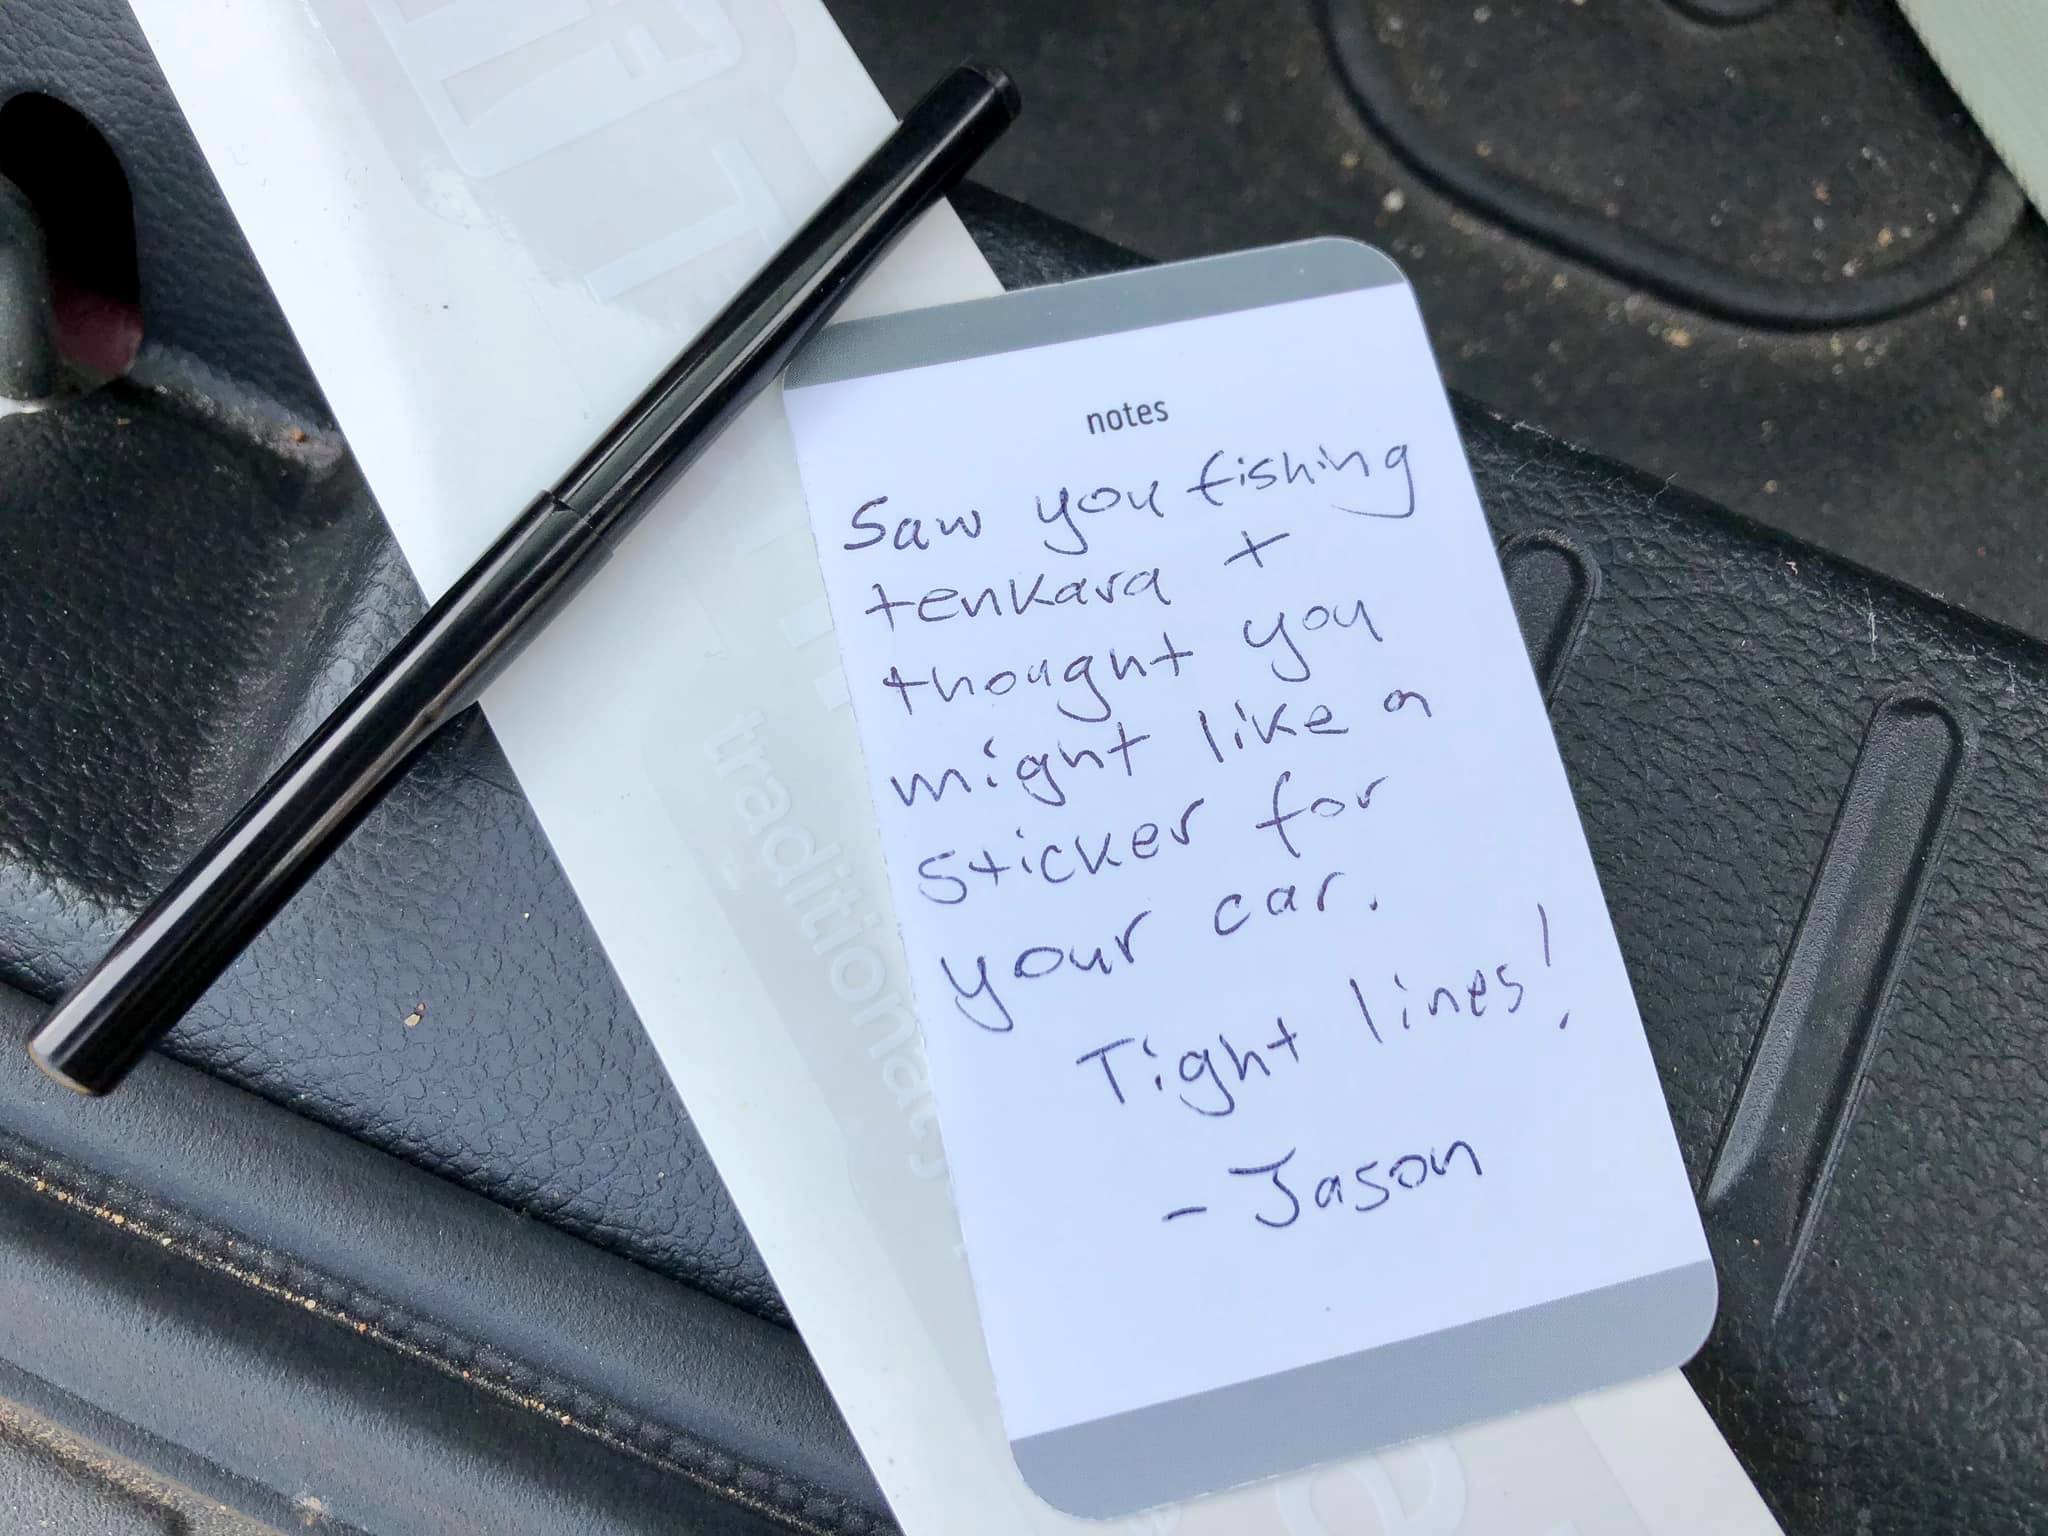 notes
Saw you fishing
tenkara +
thought you
might like a
sticker for
your car.
Tight lines!
- Jason
traditional